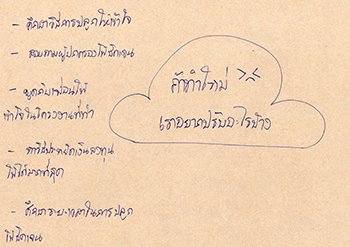 - ศึกษาวิธีการปลูกให้เข้าใจ
- สอบถามผู้ปกครองให้ชัดเจน
- พูดกับเพื่อนให้
เข้าใจในโครงงานที่ทำ
- หาวิธีประหยัดเงินลงทุน
ให้ได้มากที่สุด
- ศึกษาระยะเวลาในการปลูก
ให้ชัดเจน
ถ้าทำใหม่
เราอยากปรับอะไรบ้าง